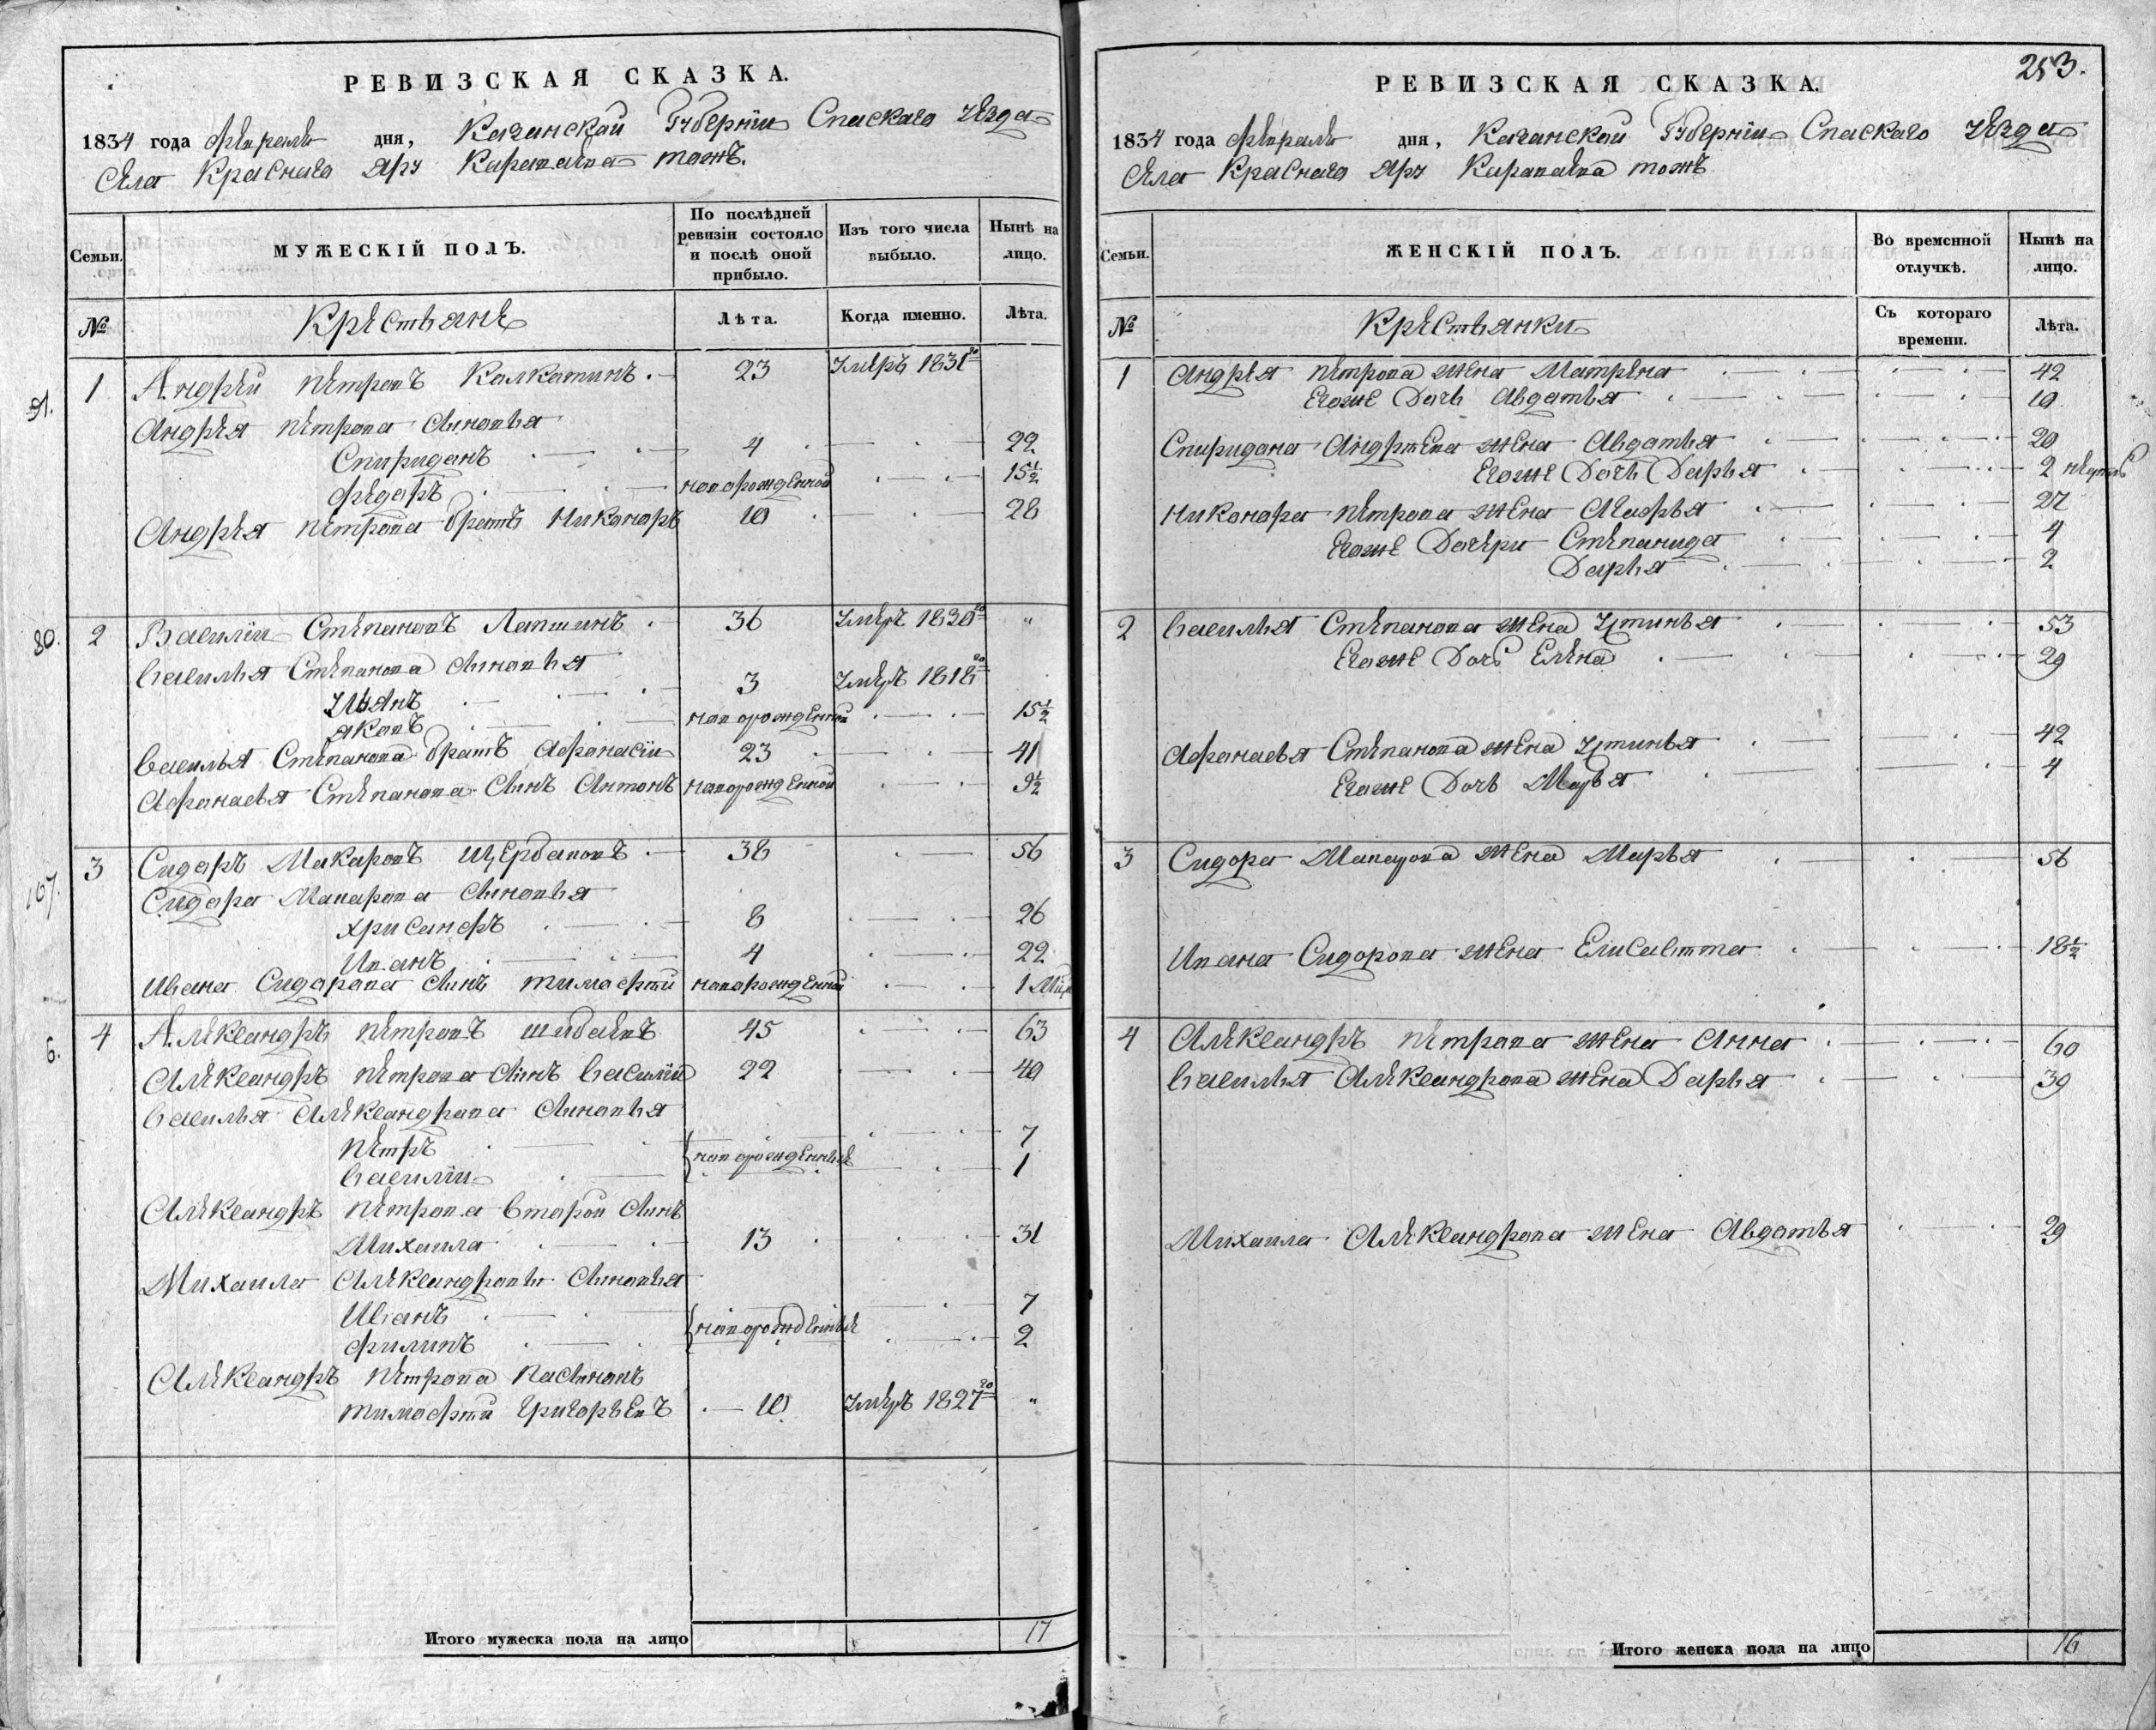 РЕВИЗСКАЯ СКАЗКА.
1834 года февраля дня, Казанской Губернии Спаскаго Уезда
Села Краснаго Яру Карамалка тожъ.
Семьи. МУЖЕСКІЙ ПОЛЪ. По послѣдней ревизіи состояло и послѣ оной прибыло. Изъ того числа выбыло. Нынѣ на лицо.
№ Крестьяне Лѣта. Когда именно. Лѣта.
91. 1 Андрей Петровъ Калкатинъ 23 Умеръ 1831го
Андрея Петрова Синовья
Спиридонъ 4 22
Федоръ новорожденной 15½
Андрея Петрова братъ Никоноръ 10 28
80. 2 Василии Степановъ Лапшинъ 36 Умеръ 1830го "
Василья Степанова Синовья
Иванъ 3 Умеръ 1818го
Яковъ новорожденной 15½
Василья Степанова братъ Афонасіи 23 41
Афонасья Степанова Синъ Антонъ новорожденной 9½
107. 3 Сидоръ Макаровъ Щербаковъ 38 56
Сидора Макарова Синовья
Хрисанфъ 8 26
Иванъ 4 22
Ивана Сидорова Синъ Тимофей новорожденной 1
6. 4 Александръ Петровъ Шибаевъ 45 63
Александръ Петрова Синъ Василии 22 40
Василья Александрова Синовья
Петръ новорожденные 7
Василии 1
Александръ Петрова Второй Синъ
Михаила 13 31
Михаила Александровы Синовья
Иванъ новорожденные 7
Филипъ 2
Александръ Петрова Пасынокъ
Тимофей Григорьевъ 10 Умеръ 1827го "
Итого мужеска пола на лицо 17
253.
РЕВИЗСКАЯ СКАЗКА.
1834 года февраля дня, Казанской Губернии Спаскаго Уезда
Села Краснаго Яру Карамалка тожъ
Семьи. ЖЕНСКІЙ ПОЛЪ. Во временной отлучкѣ. Нынѣ на лицо.
№ Крестьянки Съ котораго времени. Лѣта.
1 Андрея Петрова жена Матрена 42
Егоже Дочь Авдотья 10
Спиридона Андреева жена Авдотья 20
Егоже Дочь Дарья 2 недели
Никонора Петрова жена Агафья 27
Егоже Дочери Степанида 4
Дарья 2
2 Василья Степанова жена Устинья 53
Егоже Дочь Елена 29
Афонасья Степанова жена Устинья 42
Егоже Дочь Марья 4
3 Сидора Макарова жена Марья 56
Ивана Сидорова жена Елисавета 18½
4 Александръ Петрова жена Анна 60
Василья Александрова жена Дарья 39
Михаила Александрова жена Авдотья 29
Итого женска пола на лицо 16